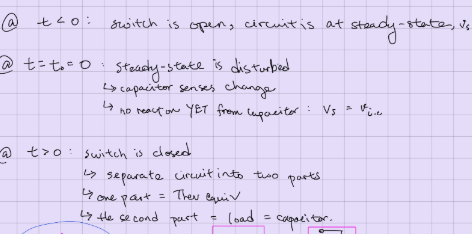 @ t<0: switch is open, circuit is at steady-state, Vs
@ t=t₀=0: steady-state is disturbed
↳ capacitor senses change
↳ no reaction YET from capacitor: Vs = Vi.c
@ t>0: switch is closed
↳ separate circuit into two parts
↳ one part = Thev equiv
↳ the second part = load = capacitor.